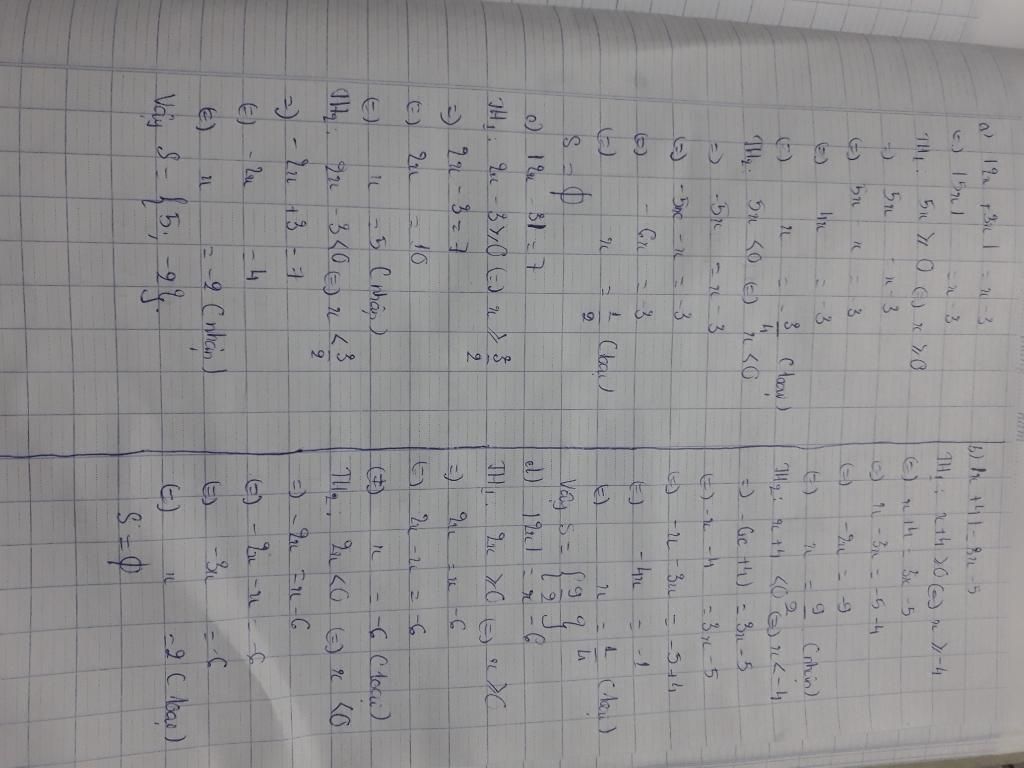 a) |2x + 3x| = x - 3
(=) |5x| = x - 3
TH₁: 5x ≥ 0 (=) x ≥ 0
=) 5x = x - 3
(=) 5x - x = -3
(=) 4x = -3
(=) x = -3/4 (loại)
TH₂: 5x < 0 (=) x < 0
=) -5x = x - 3
(=) -5x - x = -3
(=) -6x = -3
(=) x = 1/2 (loại)
S = ∅
c) |2x - 3| = 7
TH₁: 2x - 3 ≥ 0 (=) x ≥ 3/2
=) 2x - 3 = 7
(=) 2x = 10
(=) x = 5 (nhận)
TH₂: 2x - 3 < 0 (=) x < 3/2
=) -2x + 3 = 7
(=) -2x = 4
(=) x = -2 (nhận)
Vậy S = {5, -2}
b) |x + 4| = 3x - 5
TH₁: x + 4 ≥ 0 (=) x ≥ -4
(=) x + 4 = 3x - 5
(=) x - 3x = -5 - 4
(=) -2x = -9
(=) x = 9/2 (nhận)
TH₂: x + 4 < 0 (=) x < -4
=) -(x + 4) = 3x - 5
(=) -x - 4 = 3x - 5
(=) -x - 3x = -5 + 4
(=) -4x = -1
(=) x = 1/4 (loại)
Vậy S = {9/2}
d) |2x| = x - 6
TH₁: 2x ≥ 0 (=) x ≥ 0
=) 2x = x - 6
(=) 2x - x = -6
(=) x = -6 (loại)
TH₂: 2x < 0 (=) x < 0
=) -2x = x - 6
(=) -2x - x = -6
(=) -3x = -6
(=) x = 2 (loại)
S = ∅